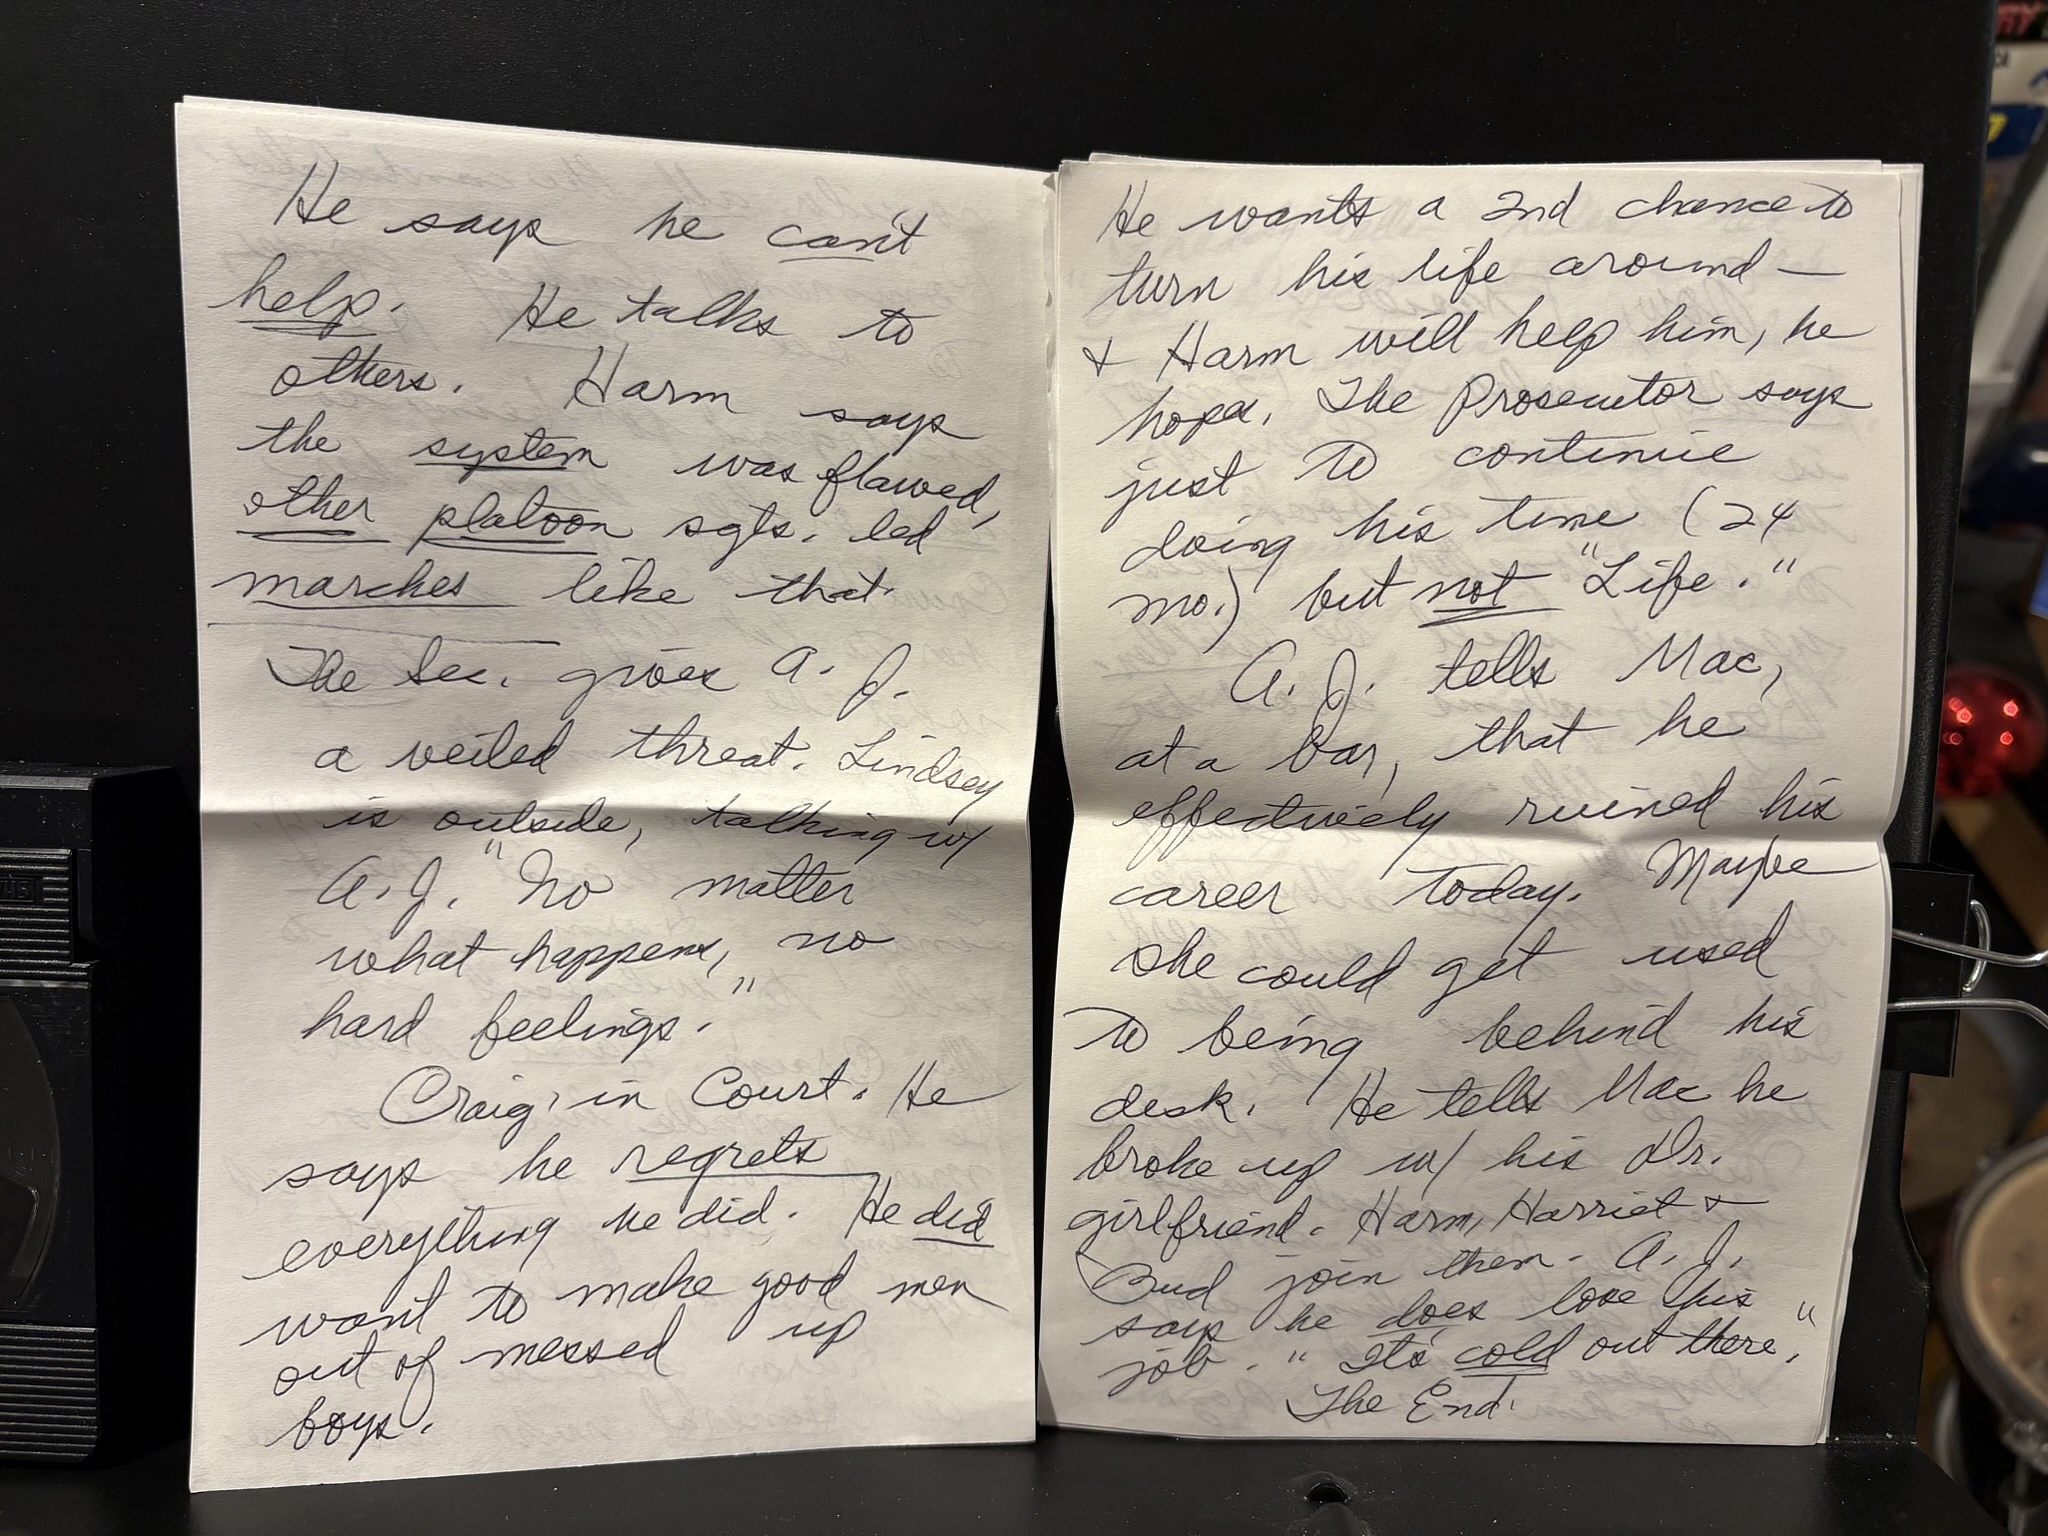 He says he can't
help. He talks to
others. Harm says
the system was flawed,
other platoon sgts. led
marches like that.
The Sec. gives A. J.
a veiled threat. Lindsey
is outside, talking w/
A. J. "No matter
what happens, no
hard feelings."
Craig in Court. He
says he regrets
everything he did. He did
want to make good men
out of messed up
boys.
He wants a 2nd chance to
turn his life around —
& Harm will help him, he
hopes. The Prosecutor says
just to continue
doing his time (24
mo.) but not "Life."
A. J. tells Mac,
at a bar, that he
effectively ruined his
career today. Maybe
she could get used
to being behind his
desk. He tells Mac he
broke up w/ his Dr.
girlfriend. Harm, Harriet &
Bud join them. A. J.
says he does love this
job. "It's cold out there."
The End
VHS